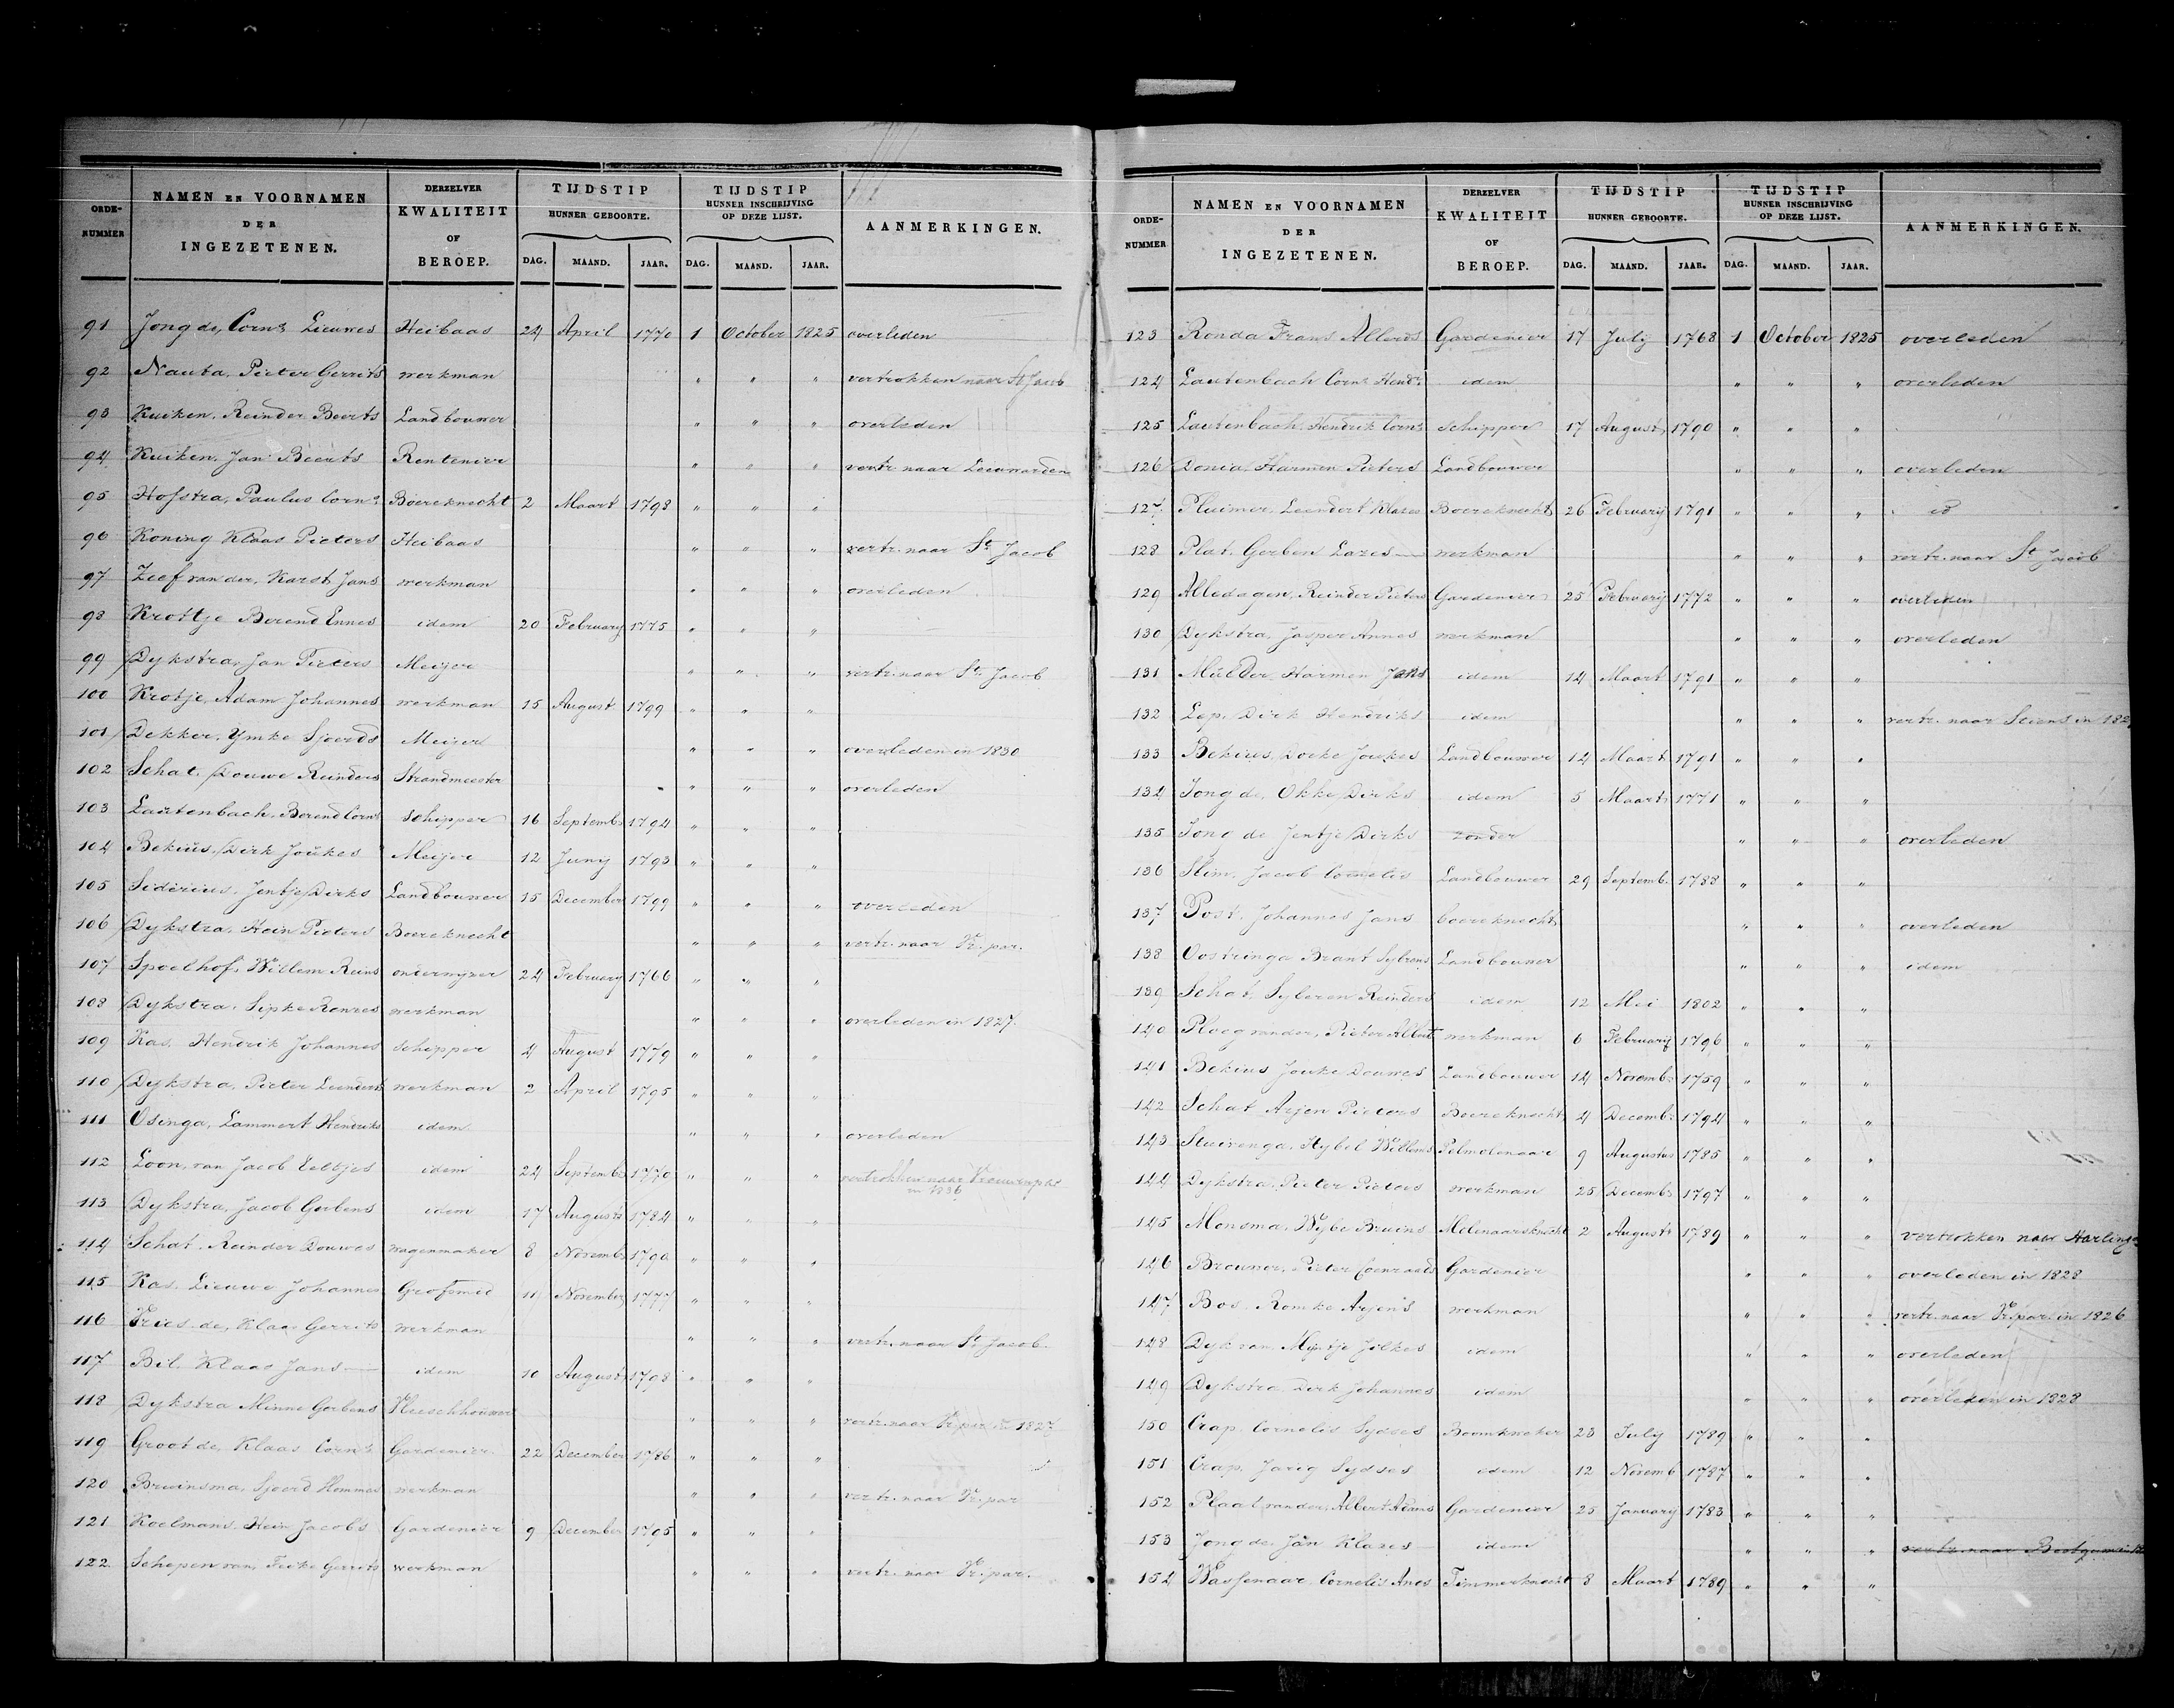 ORDE-NUMMER NAMEN EN VOORNAMEN DER INGEZETENEN. DERZELVER KWALITEIT OF BEROEP. TIJDSTIP HUNNER GEBOORTE. TIJDSTIP HUNNER INSCHRIJVING OP DEZE LIJST. AANMERKINGEN.
DAG. MAAND. JAAR. DAG. MAAND. JAAR.
91 Jong de, Corns Lieuwes Heibaas 24 April 1770 1 October 1825 overleden
92 Nauta, Pieter Gerrits werkman " " " vertrokken naar St Jacob
93 Kuiken, Reinder Beerts Landbouwer " " " overleden
94 Kuiken, Jan Beerts Rentenier " " " vertr. naar Leeuwarden
95 Hofstra, Paulus Corns Boereknecht 2 Maart 1798 " " "
96 Koning Klaas Pieters Heibaas " " " vertr. naar St Jacob
97 Zeef van der, Karst Jans werkman " " " overleden
98 Krottje Berend Ennes idem 20 February 1775 " " "
99 Dykstra, Jan Pieters Meijer " " " vertr. naar St Jacob
100 Krotje, Adam Johannes werkman 15 August 1799 " " "
101 Dekker, Ymke Sjoerds Meijer " " " overleden in 1830
102 Schat, Douwe Reinders Strandmeester " " " overleden
103 Lautenbach, Berend Corns Schipper 16 Septemb. 1794 " " "
104 Bekius, Dirk Joukes Meijer 12 Juny 1793 " " "
105 Siderius, Jentje Dirks Landbouwer 15 December 1799 " " " overleden
106 Dykstra, Hein Pieters Boereknecht " " " vertr. naar Vr. par.
107 Spoelhof, Willem Reins onderwyzer 24 February 1766 " " "
108 Dykstra, Sipke Ronres werkman " " " overleden in 1827.
109 Kas, Hendrik Johannes schipper 4 August 1779 " " "
110 Dykstra, Pieter Leenderts werkman 2 April 1795 " " "
111 Osinga, Lammert Hendriks idem " " " overleden
112 Loon, van Jacob Eeltjes idem 24 Septemb. 1770 " " " vertrokken naar
in 1836
113 Dykstra, Jacob Gerbens idem 17 August 1784 " " "
114 Schat, Reinder Douwes wagenmaker 8 Novemb. 1790 " " "
115 Kas, Lieuwe Johannes Grofsmid 11 November 1777 " " "
116 Vries de, Klaas Gerrits werkman " " " vertr. naar St Jacob.
117 Bil, Klaas Jans idem 10 August 1798 " " "
118 Dykstra Minne Gerbens Vleeschhouwer " " " vertr. naar Vr. par in 1827
119 Groot de, Klaas Corns Gardenier 22 December 1786 " " "
120 Bruinsma, Sjoerd Hommes werkman " " " vertr. naar Vr. par
121 Koelmans, Hein Jacobs Gardenier 9 December 1795 " " "
122 Schepen van, Feike Gerrits werkman " " " vertr. naar Vr. par.
ORDE-NUMMER NAMEN EN VOORNAMEN DER INGEZETENEN. DERZELVER KWALITEIT OF BEROEP. TIJDSTIP HUNNER GEBOORTE. TIJDSTIP HUNNER INSCHRIJVING OP DEZE LIJST. AANMERKINGEN.
DAG. MAAND. JAAR. DAG. MAAND. JAAR.
123 Ronda Frans Allerds Gardenier 17 July 1768 1 October 1825 overleden
124 Lautenbach Corns Hendr. idem " " " overleden
125 Lautenbach, Hendrik Corns Schipper 17 August 1790 " " "
126 Donia Harmen Pieters Landbouwer " " " overleden
127 Pluimer, Leendert Klases Boereknecht 26 February 1791 " " " id
128 Plat, Gerben Lazes werkman " " " vertr. naar St Jacob
129 Alledagen, Reinder Pieters Gardenier 25 February 1772 " " " overleden
130 Dykstra, Jasper Annes werkman " " " overleden
131 Mulder, Harmen Jans idem 14 Maart 1791 " " "
132 Lep, Dirk Hendriks idem " " " vertr. naar Stiens in 182
133 Bekius, Doeke Joukes Landbouwer 14 Maart 1791 " " "
134 Jong de, Okke Dirks idem 5 Maart 1771 " " "
135 Jong de Jentje Dirks zonder " " " overleden
136 Slim, Jacob Cornelis Landbouwer 29 Septemb. 1788 " " "
137 Post, Johannes Jans boereknecht " " " overleden
138 Oostringa Brant Sybrens Landbouwer " " " idem
139 Schat, Sybren Reinders idem 12 Mei 1802 " " "
140 Ploeg van der, Pieter Alberts werkman 6 February 1796 " " "
141 Bekius Jouke Douwes Landbouwer 14 Novemb. 1759 " " "
142 Schat Arjen Pieters Boereknecht 4 Decemb. 1794 " " "
143 Stuirenga, Hybel Willems Pelmolenaar 9 Augustus 1785 " " "
144 Dykstra Pieter Pieters werkman 25 Decemb. 1797 " " "
145 Monsma, Wybe Bruins Molenaarsknecht 2 August 1789 " " " vertrokken naar Harlingen
146 Brouwer, Pieter Coenraads Gardenier " " " overleden in 1828
147 Bos, Romke Arjens werkman " " " vertr. naar Vr. par. in 1826
148 Dyk van, Myntje Jilkes idem " " " overleden
149 Dykstra Dirk Johannes idem " " " overleden in 1828
150 Crap, Cornelis Sydses Boomkweker 23 July 1789 " " "
151 Crap, Jarig Sydses idem 12 Novemb 1787 " " "
152 Plaat van der, Albert Adams Gardenier 25 January 1783 " " "
153 Jong de, Jan Klases idem " " " vertr. naar
154 Wassenaar Cornelis Anes Timmerknecht 8 Maart 1789 " " "